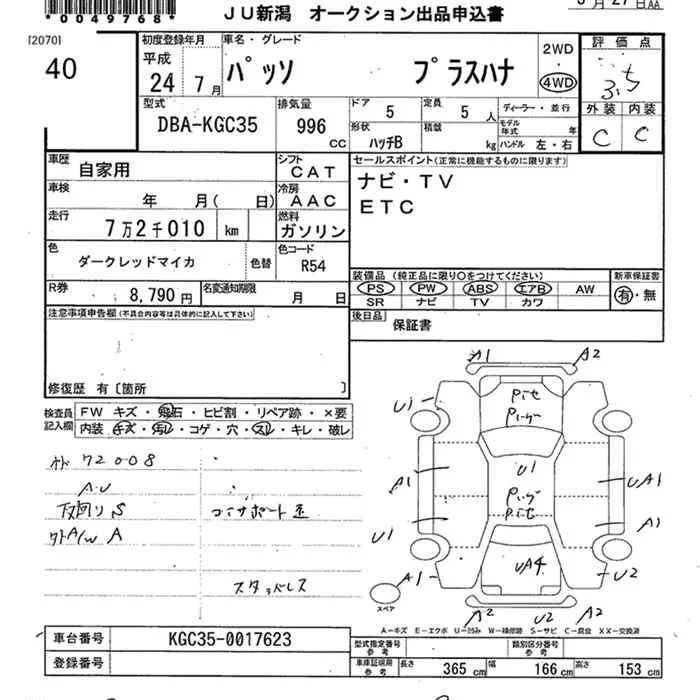 *0049768*
JU新潟 オークション出品申込書
[2070]
40
初度登録年月
平成
24 7月
車名・グレード
パッソ プラスハナ
2WD
4WD
評価点
3.5
外装 内装
C C
型式
DBA-KGC35
排気量
996 CC
ドア 5
定員 5人
ディーラー・並行
形状 ハッチB
積載 kg
モデル年式 年
ハンドル 左・右
車歴 自家用
シフト CAT
セールスポイント(正常に機能するものに限ります)
ナビ・TV
ETC
車検 年 月( 日)
冷房 AAC
走行 7万2千010 km
燃料 ガソリン
色 ダークレッドマイカ 色替
色コード R54
R券 8,790円
名変通知期限 月 日
装備品(純正品に限り○をつけてください)
PS PW ABS エアB AW
SR ナビ TV カワ
新車保証書
有・無
後日品 保証書
注意事項申告欄(不具合内容等は具体的に記入して下さい)
修復歴 有〔箇所 〕
検査員記入欄
FW キズ・飛石・ヒビ割・リペア跡・×要
内装 キズ・汚レ・コゲ・穴・スレ・キレ・破レ
72008
A.U
下回りS
外A/W A
コーナーサポート
スタッドレス
A1 A2
U1
A1
U1
A1
U1
UA1
A1
UA4
U2
A2 U2 A2
スペア
A-キズ E-エクボ U-凹み W-補修跡 S-サビ C-腐食 XX-交換済
車台番号 KGC35-0017623
登録番号
型式指定番号 参考
類別区分番号 参考
車庫証明用 参考
長さ 365cm 幅 166cm 高さ 153cm